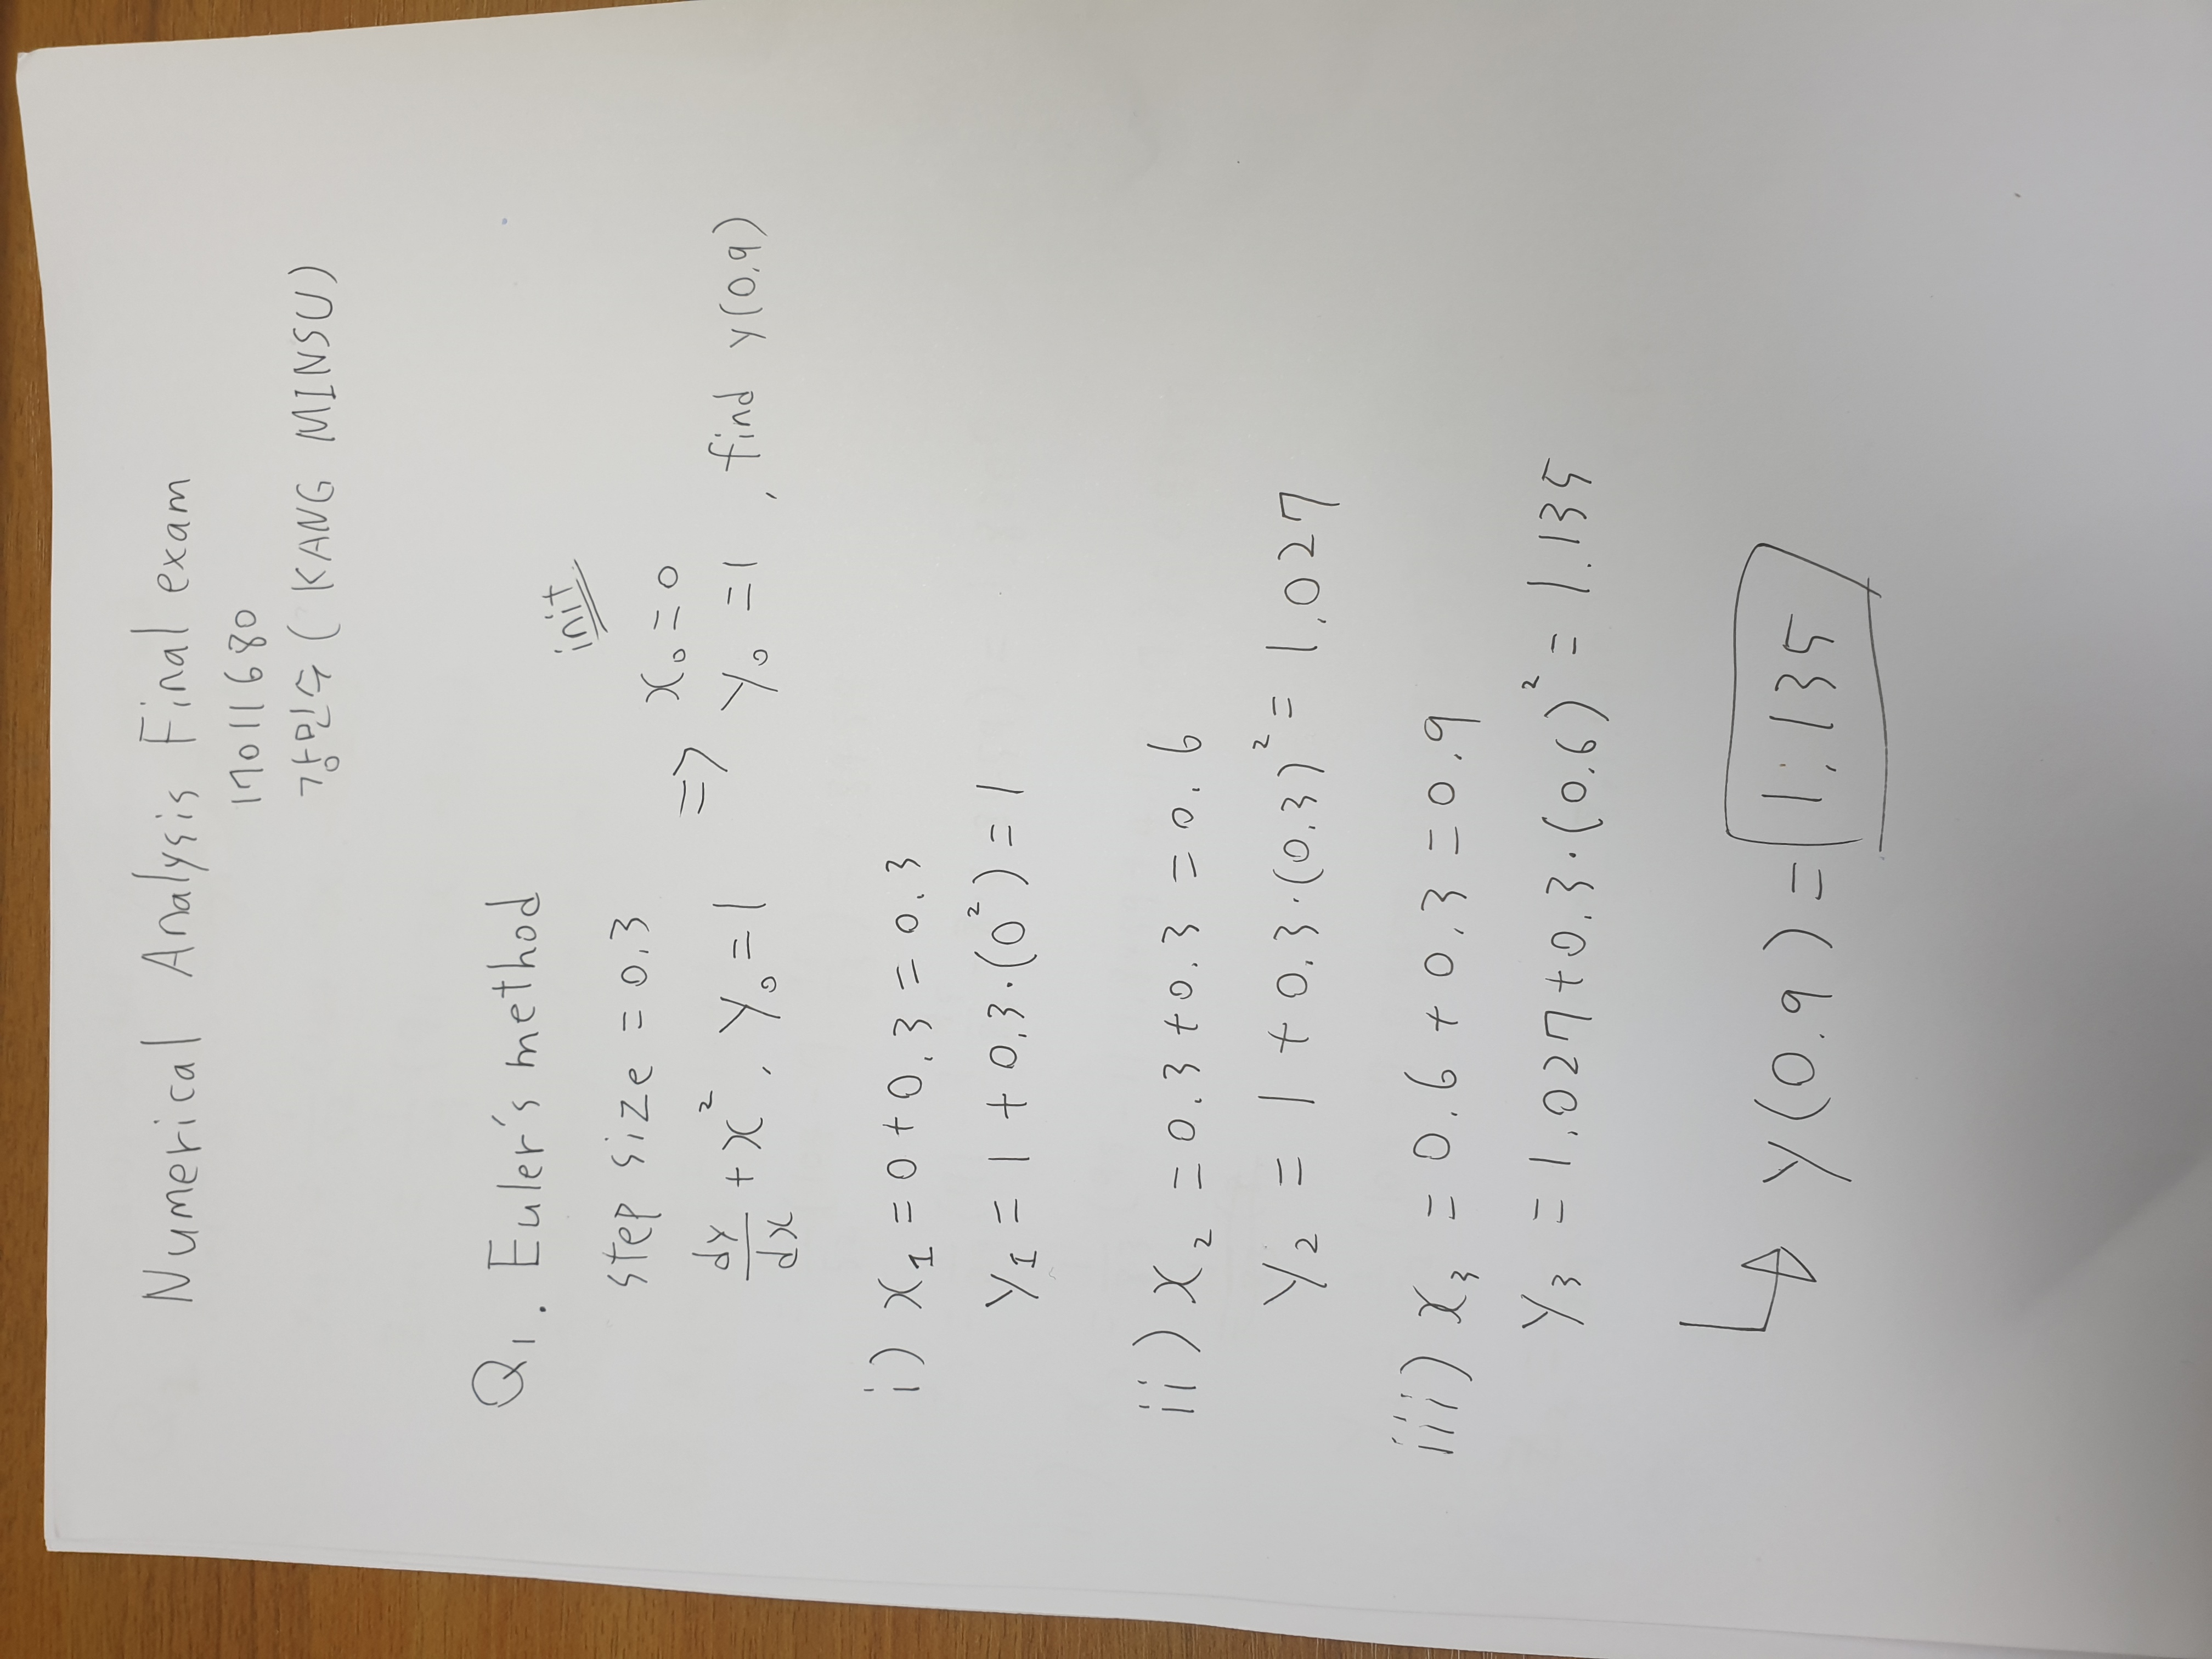 Numerical Analysis Final exam
17011680
강민수 ( KANG MINSU)
Q1. Euler's method
init
step size = 0.3
=> x₀ = 0
dy/dx + x², y₀ = 1
y₀ = 1, find y(0.9)
i) x₁ = 0 + 0.3 = 0.3
y₁ = 1 + 0.3·(0²) = 1
ii) x₂ = 0.3 + 0.3 = 0.6
y₂ = 1 + 0.3·(0.3)² = 1.027
iii) x₃ = 0.6 + 0.3 = 0.9
y₃ = 1.027 + 0.3·(0.6)² = 1.135
y(0.9) = 1.135